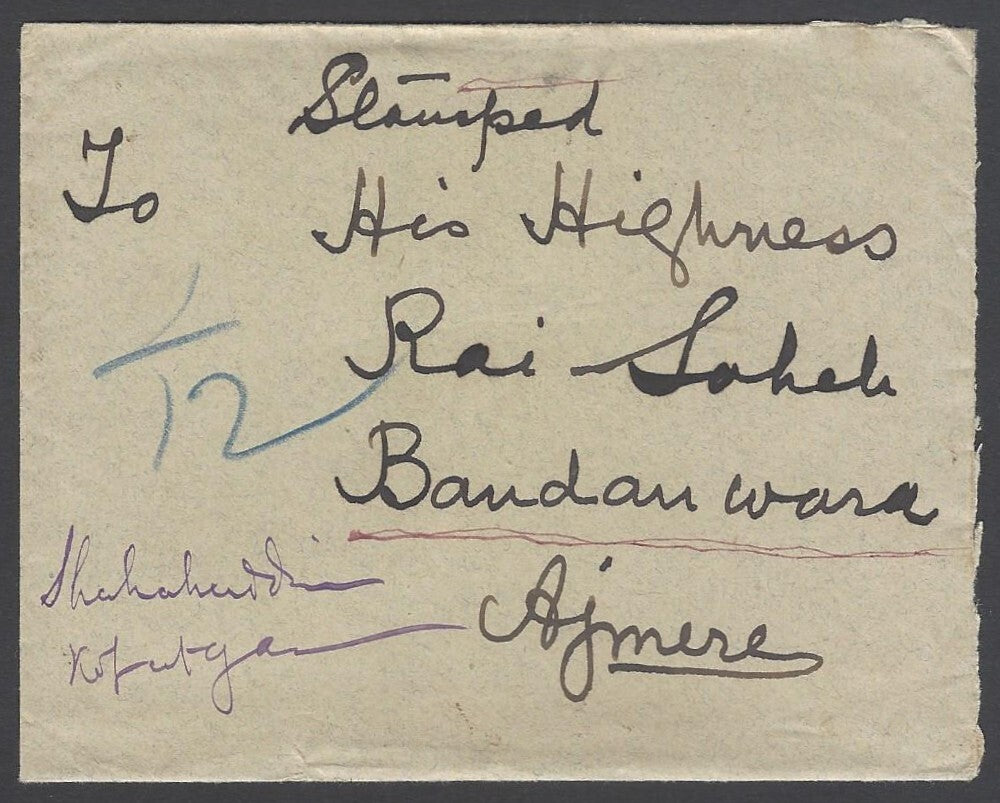 Stamped
To
His Highness
Rai Saheb
Bandanwara
Ajmere
1/12
Shahabuddin